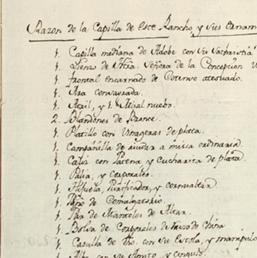 Razon de la Capilla de Este Rancho, y Sus Ornam
1. Capilla mediana de Adobe con su Sachristia
1. Lienso de Ntra. Señora de la Concepcion
1. frontal encarnado de
1. Ara consagrada.
1. Atril, y 1. Misal nuevo.
2. Blandones de
1. Platillo con Vinageras de plata.
1. Campanilla de aiudar a missa ordinaria
1. Calis con Patena y Cucharita de plata.
1. Palia, y corporales.
1. Hijuela, Purificador, y cornualtar
1. Paño de Comulgatorio
1. Par de Manteles de Altar.
1. Bolsa de Corporales de
1. Casulla de Yd. con su Estola, y manipulo
1. Alba con su Amito y cingulo